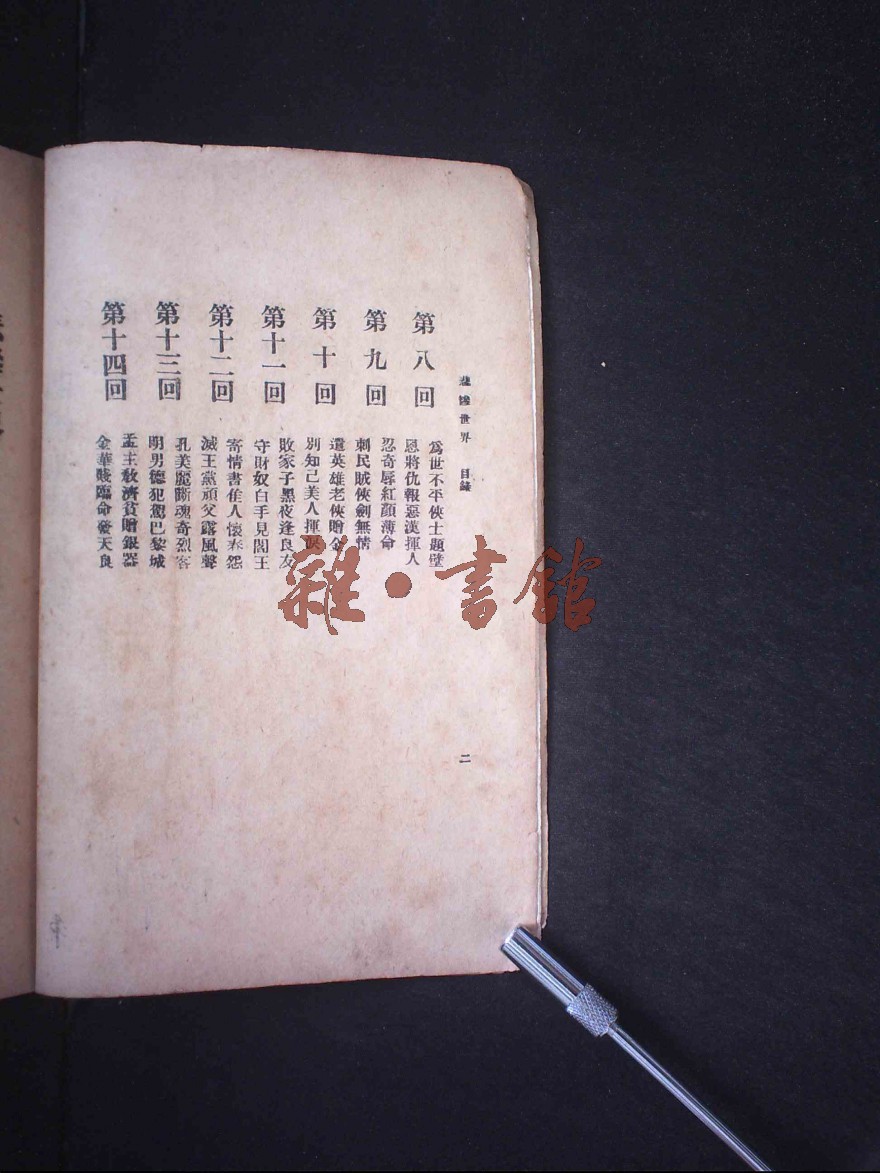 悲慘世界　目錄
第八回
為世不平俠士題壁
恩將仇報惡漢揮人
第九回
忍奇辱紅顏薄命
刺民賊俠劍無情
第十回
遺英雄老俠贈金
別知己美人揮淚
第十一回
敗家子黑夜逢良友
守財奴白手見閻王
第十二回
寄情書佳人懷春怨
滅王黨頑父露風聲
第十三回
孔美麗斷魂奇烈客
明男德犯駕巴黎城
第十四回
孟主教濟貧贈銀器
金華賤臨命發天良
二
雜·書館